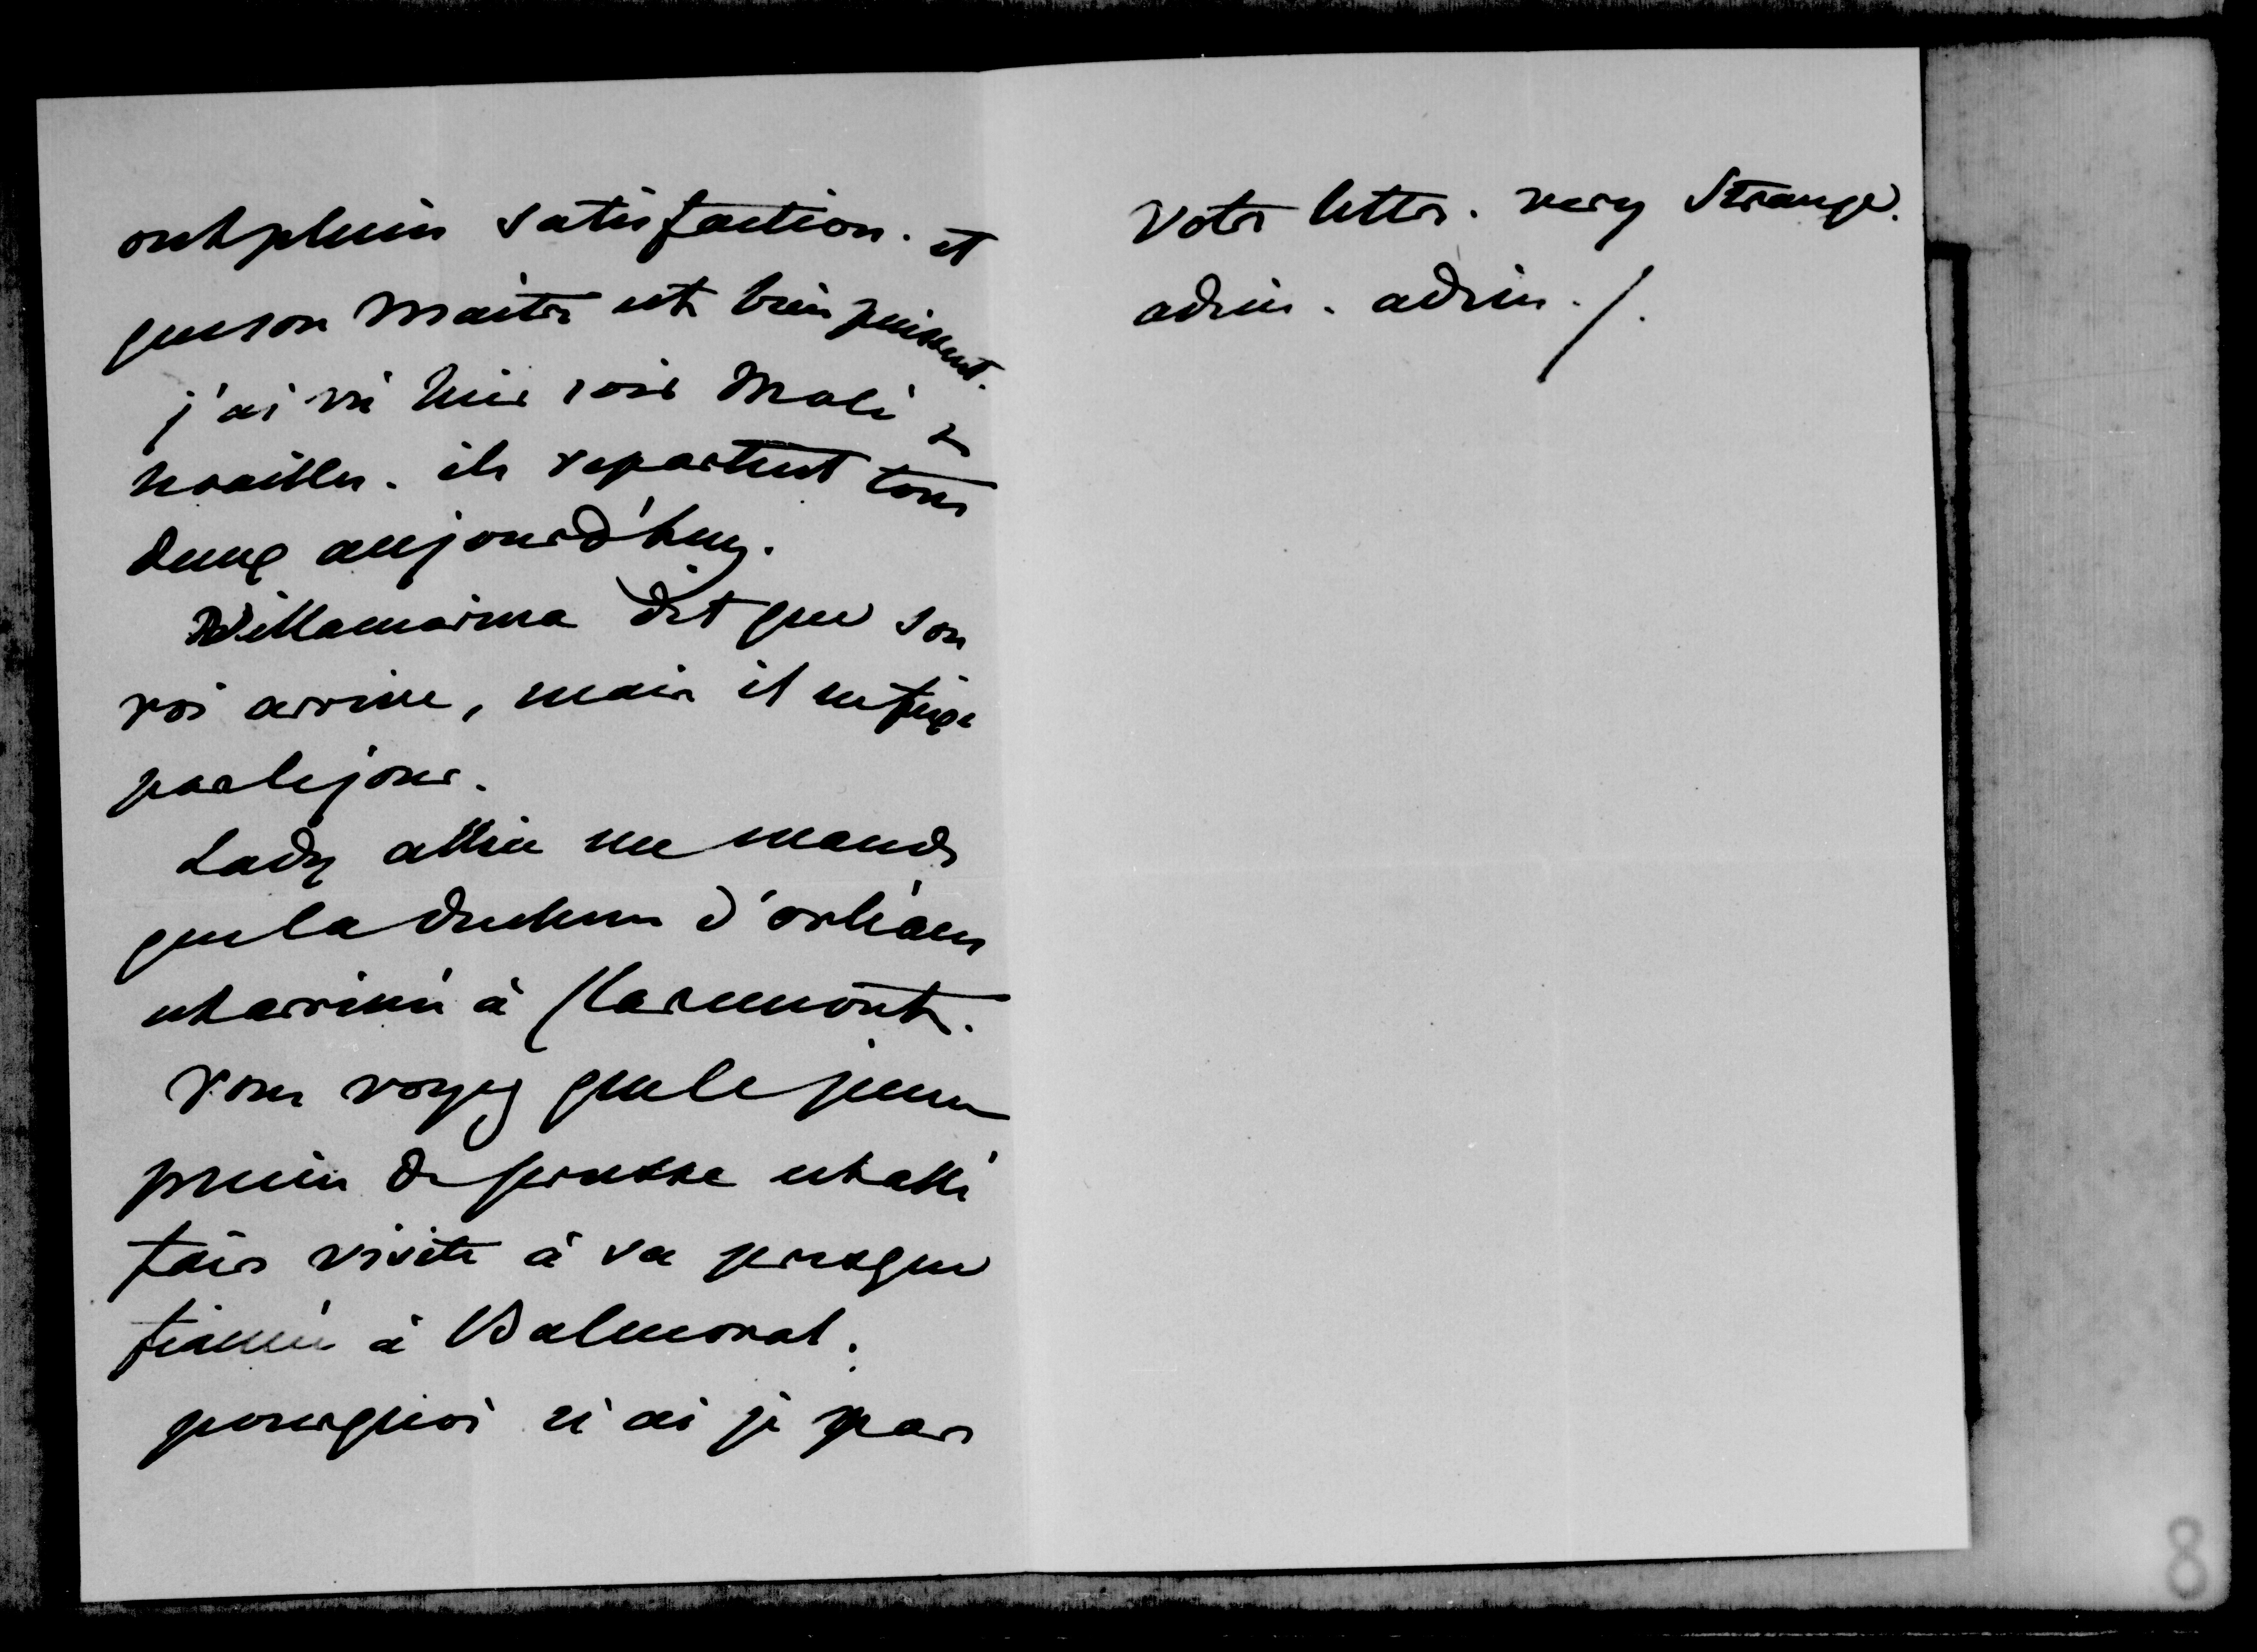 ont pleine satisfaction. et
que son Maitre est bien puissant.
j'ai vû hier soir Molé &
noailles. ils repartent tous
deux aujourd'huy.
Villamarina dit que son
roi arrive, mais il ne fixe
pas le jour.
Lady allice me mande
que la duchesse d'orléans
est arrivée à Claremont.
vous voyez que le jeune
prince de prusse est allé
faire visite à sa presque
fiancée à Balmoral.
pourquoi n'ai je pas
votre lettre. very strange.
adieu. adieu./.
8